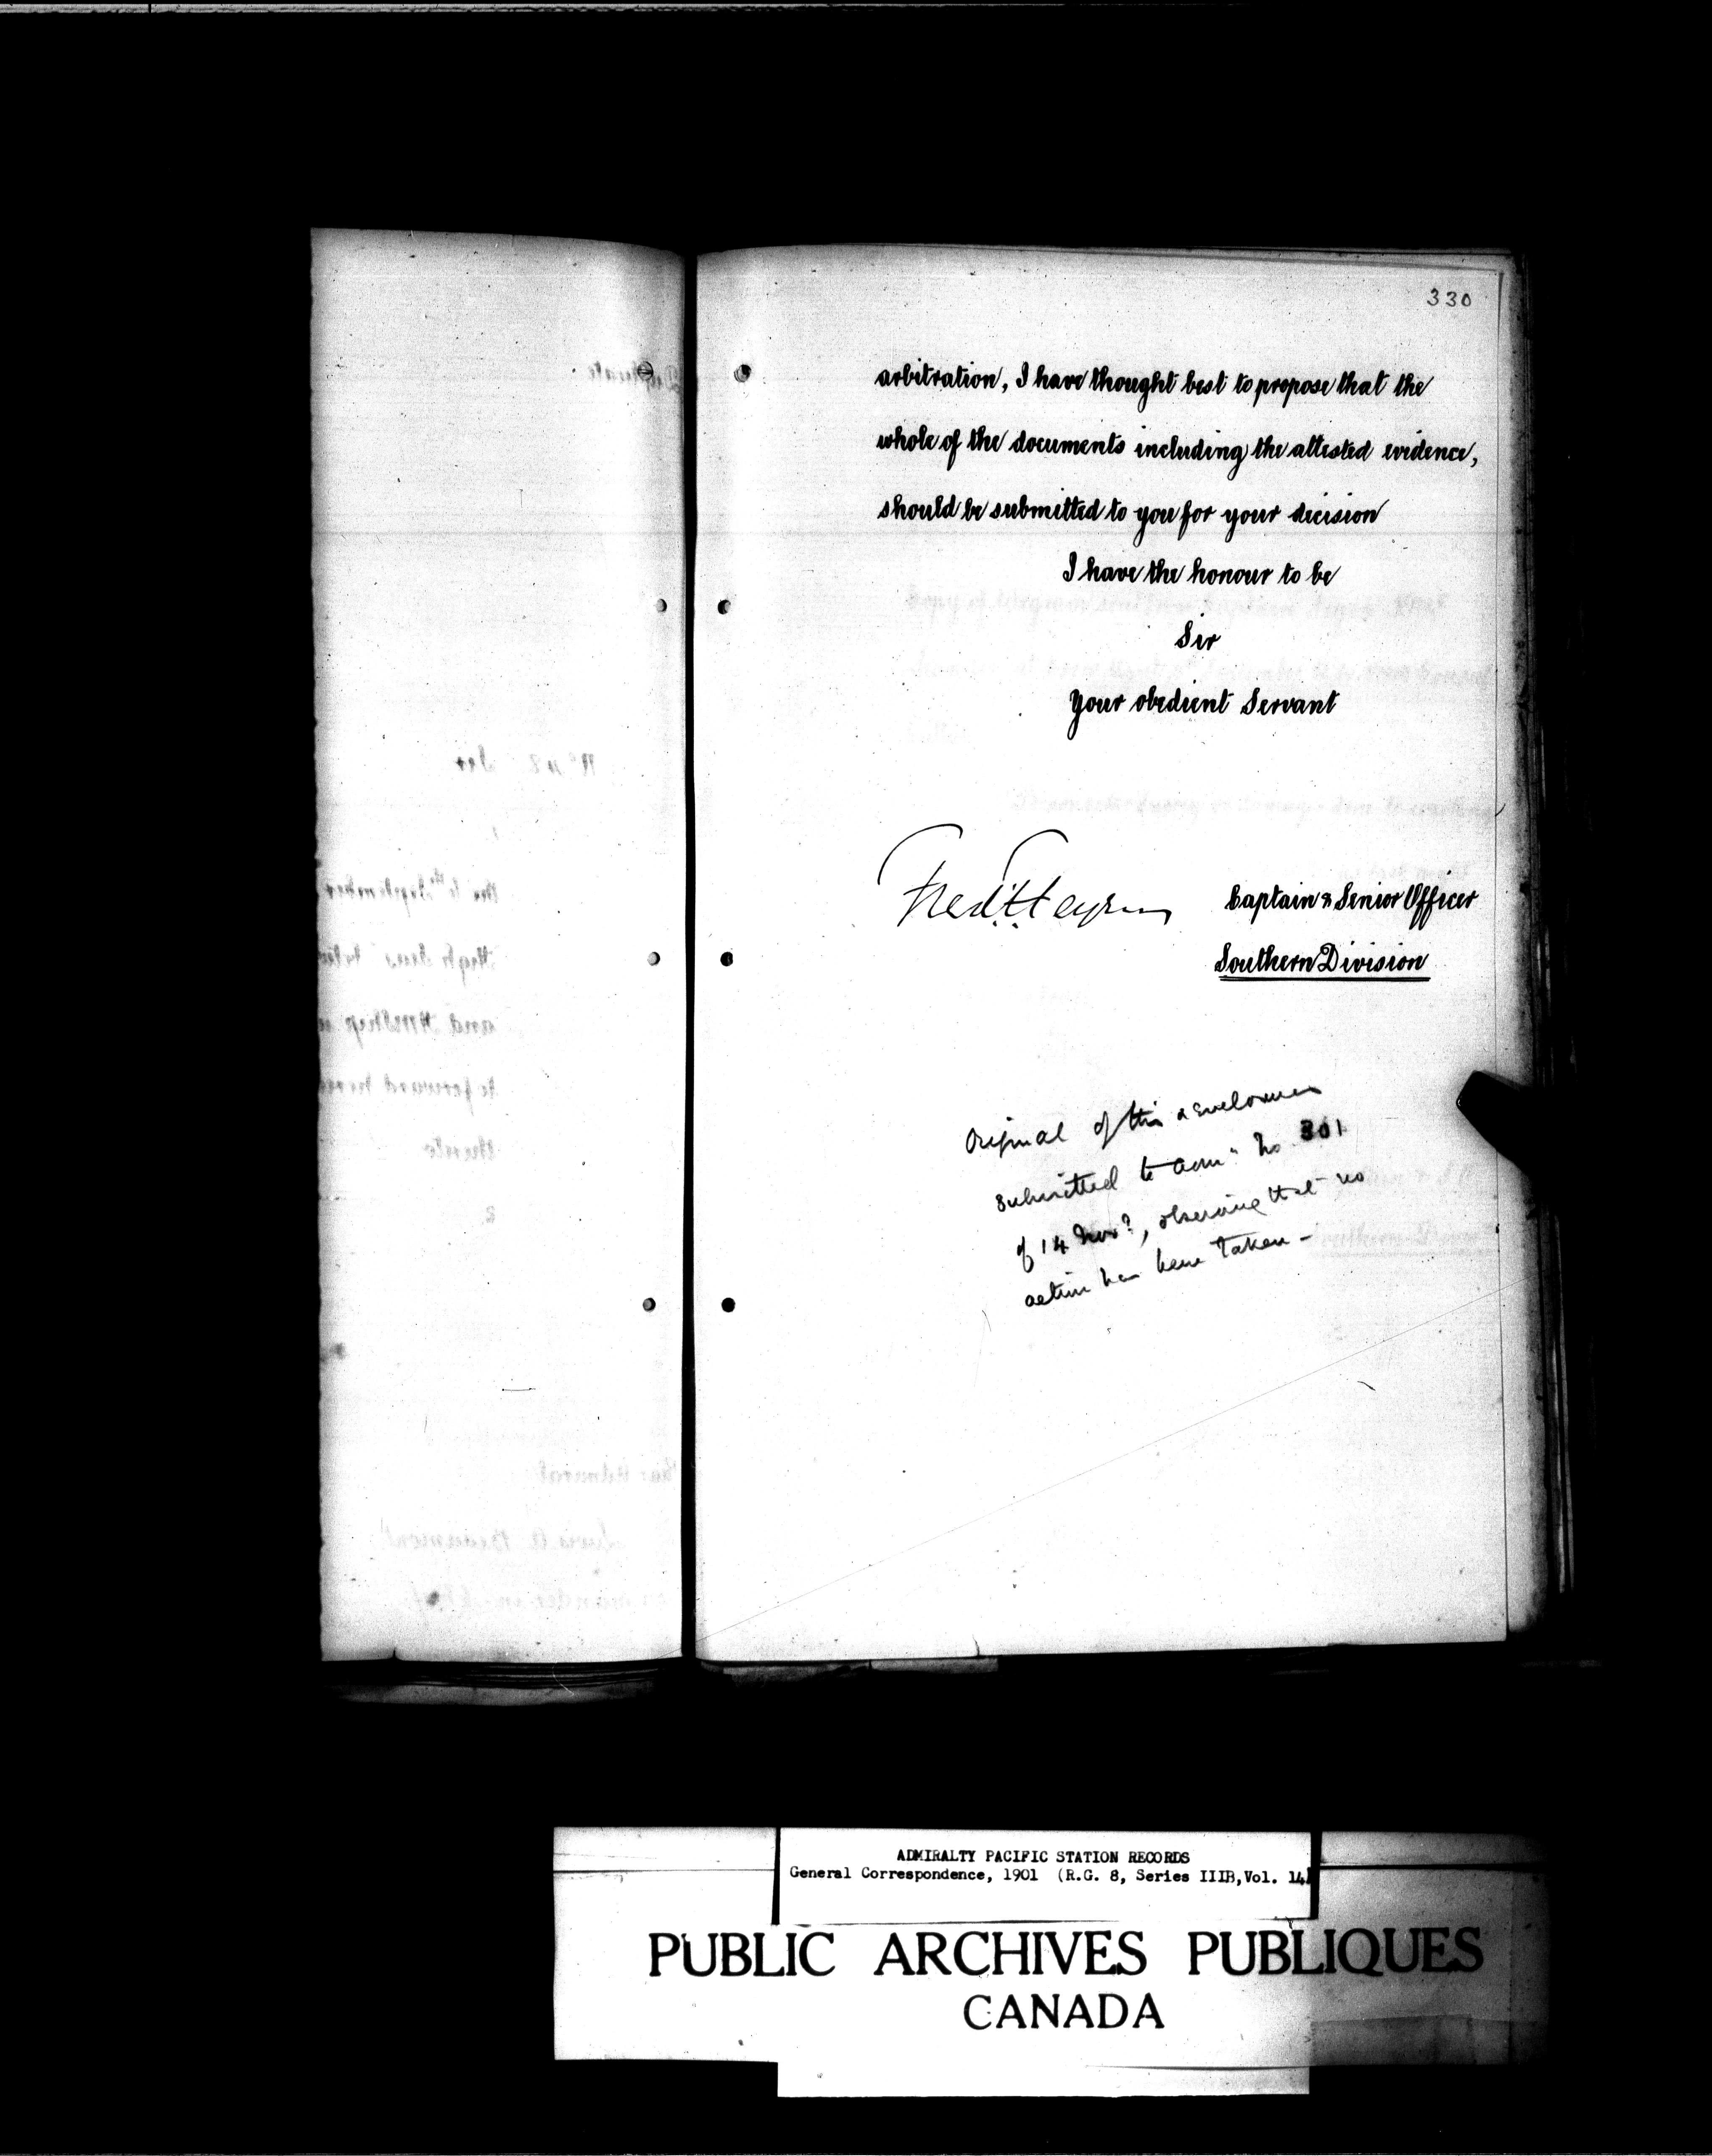 330
arbitration, I have thought best to propose that the
whole of the documents including the attested evidence,
should be submitted to you for your decision
I have the honour to be
Sir
Your obedient Servant
Captain & Senior Officer
Southern Division
Original of this & enclosures
submitted to Admy No. 301
of 14 Novr, observing that no
action has been taken -
ADMIRALTY PACIFIC STATION RECORDS
General Correspondence, 1901 (R.G. 8, Series IIIB, Vol. 14)
PUBLIC ARCHIVES PUBLIQUES
CANADA